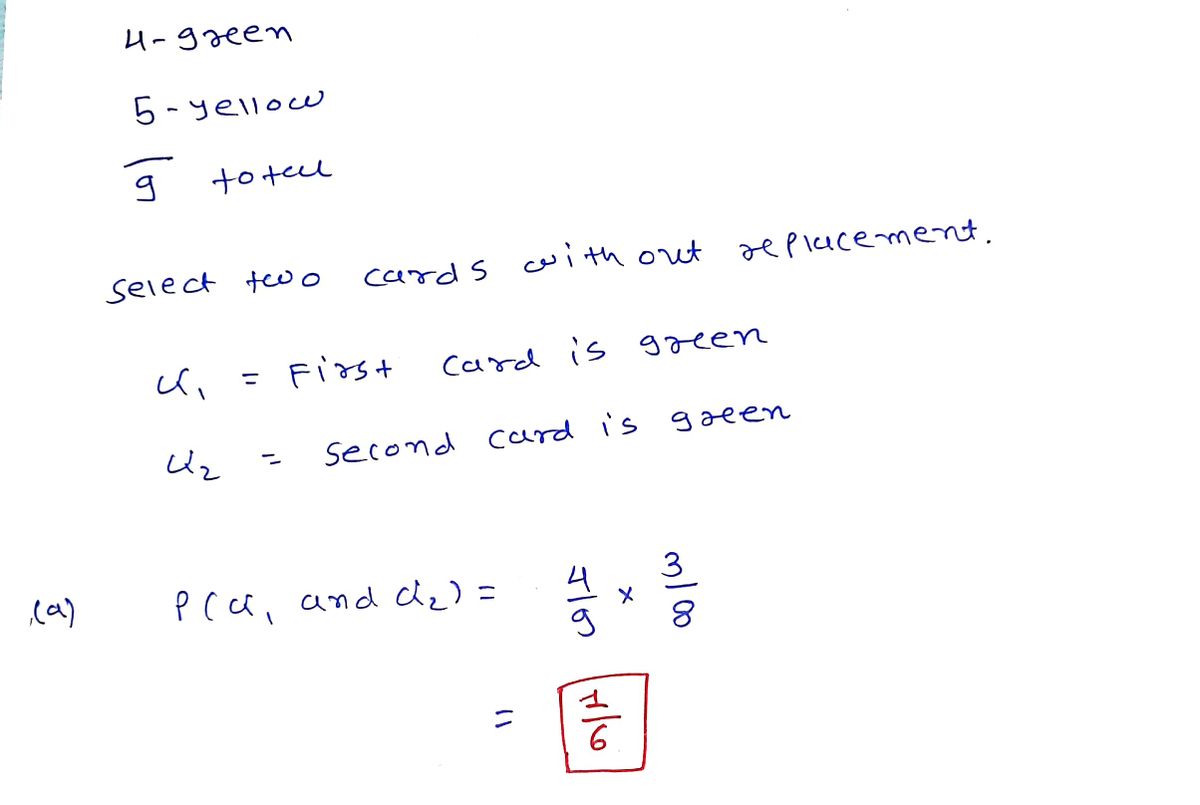 4-green
5-yellow
9 total
Select two cards with out replacement.
G₁ = First card is green
G₂ = Second card is green
(a) P(G₁ and G₂) = 4/9 × 3/8
= 1/6